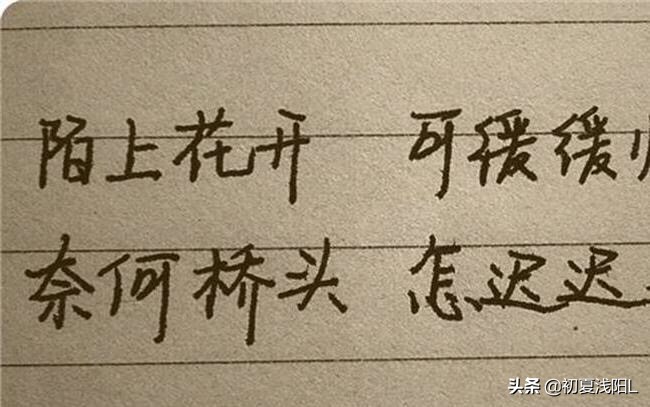 陌上花开 可缓缓
奈何桥头 怎迟迟
头条 @初夏浅阳L